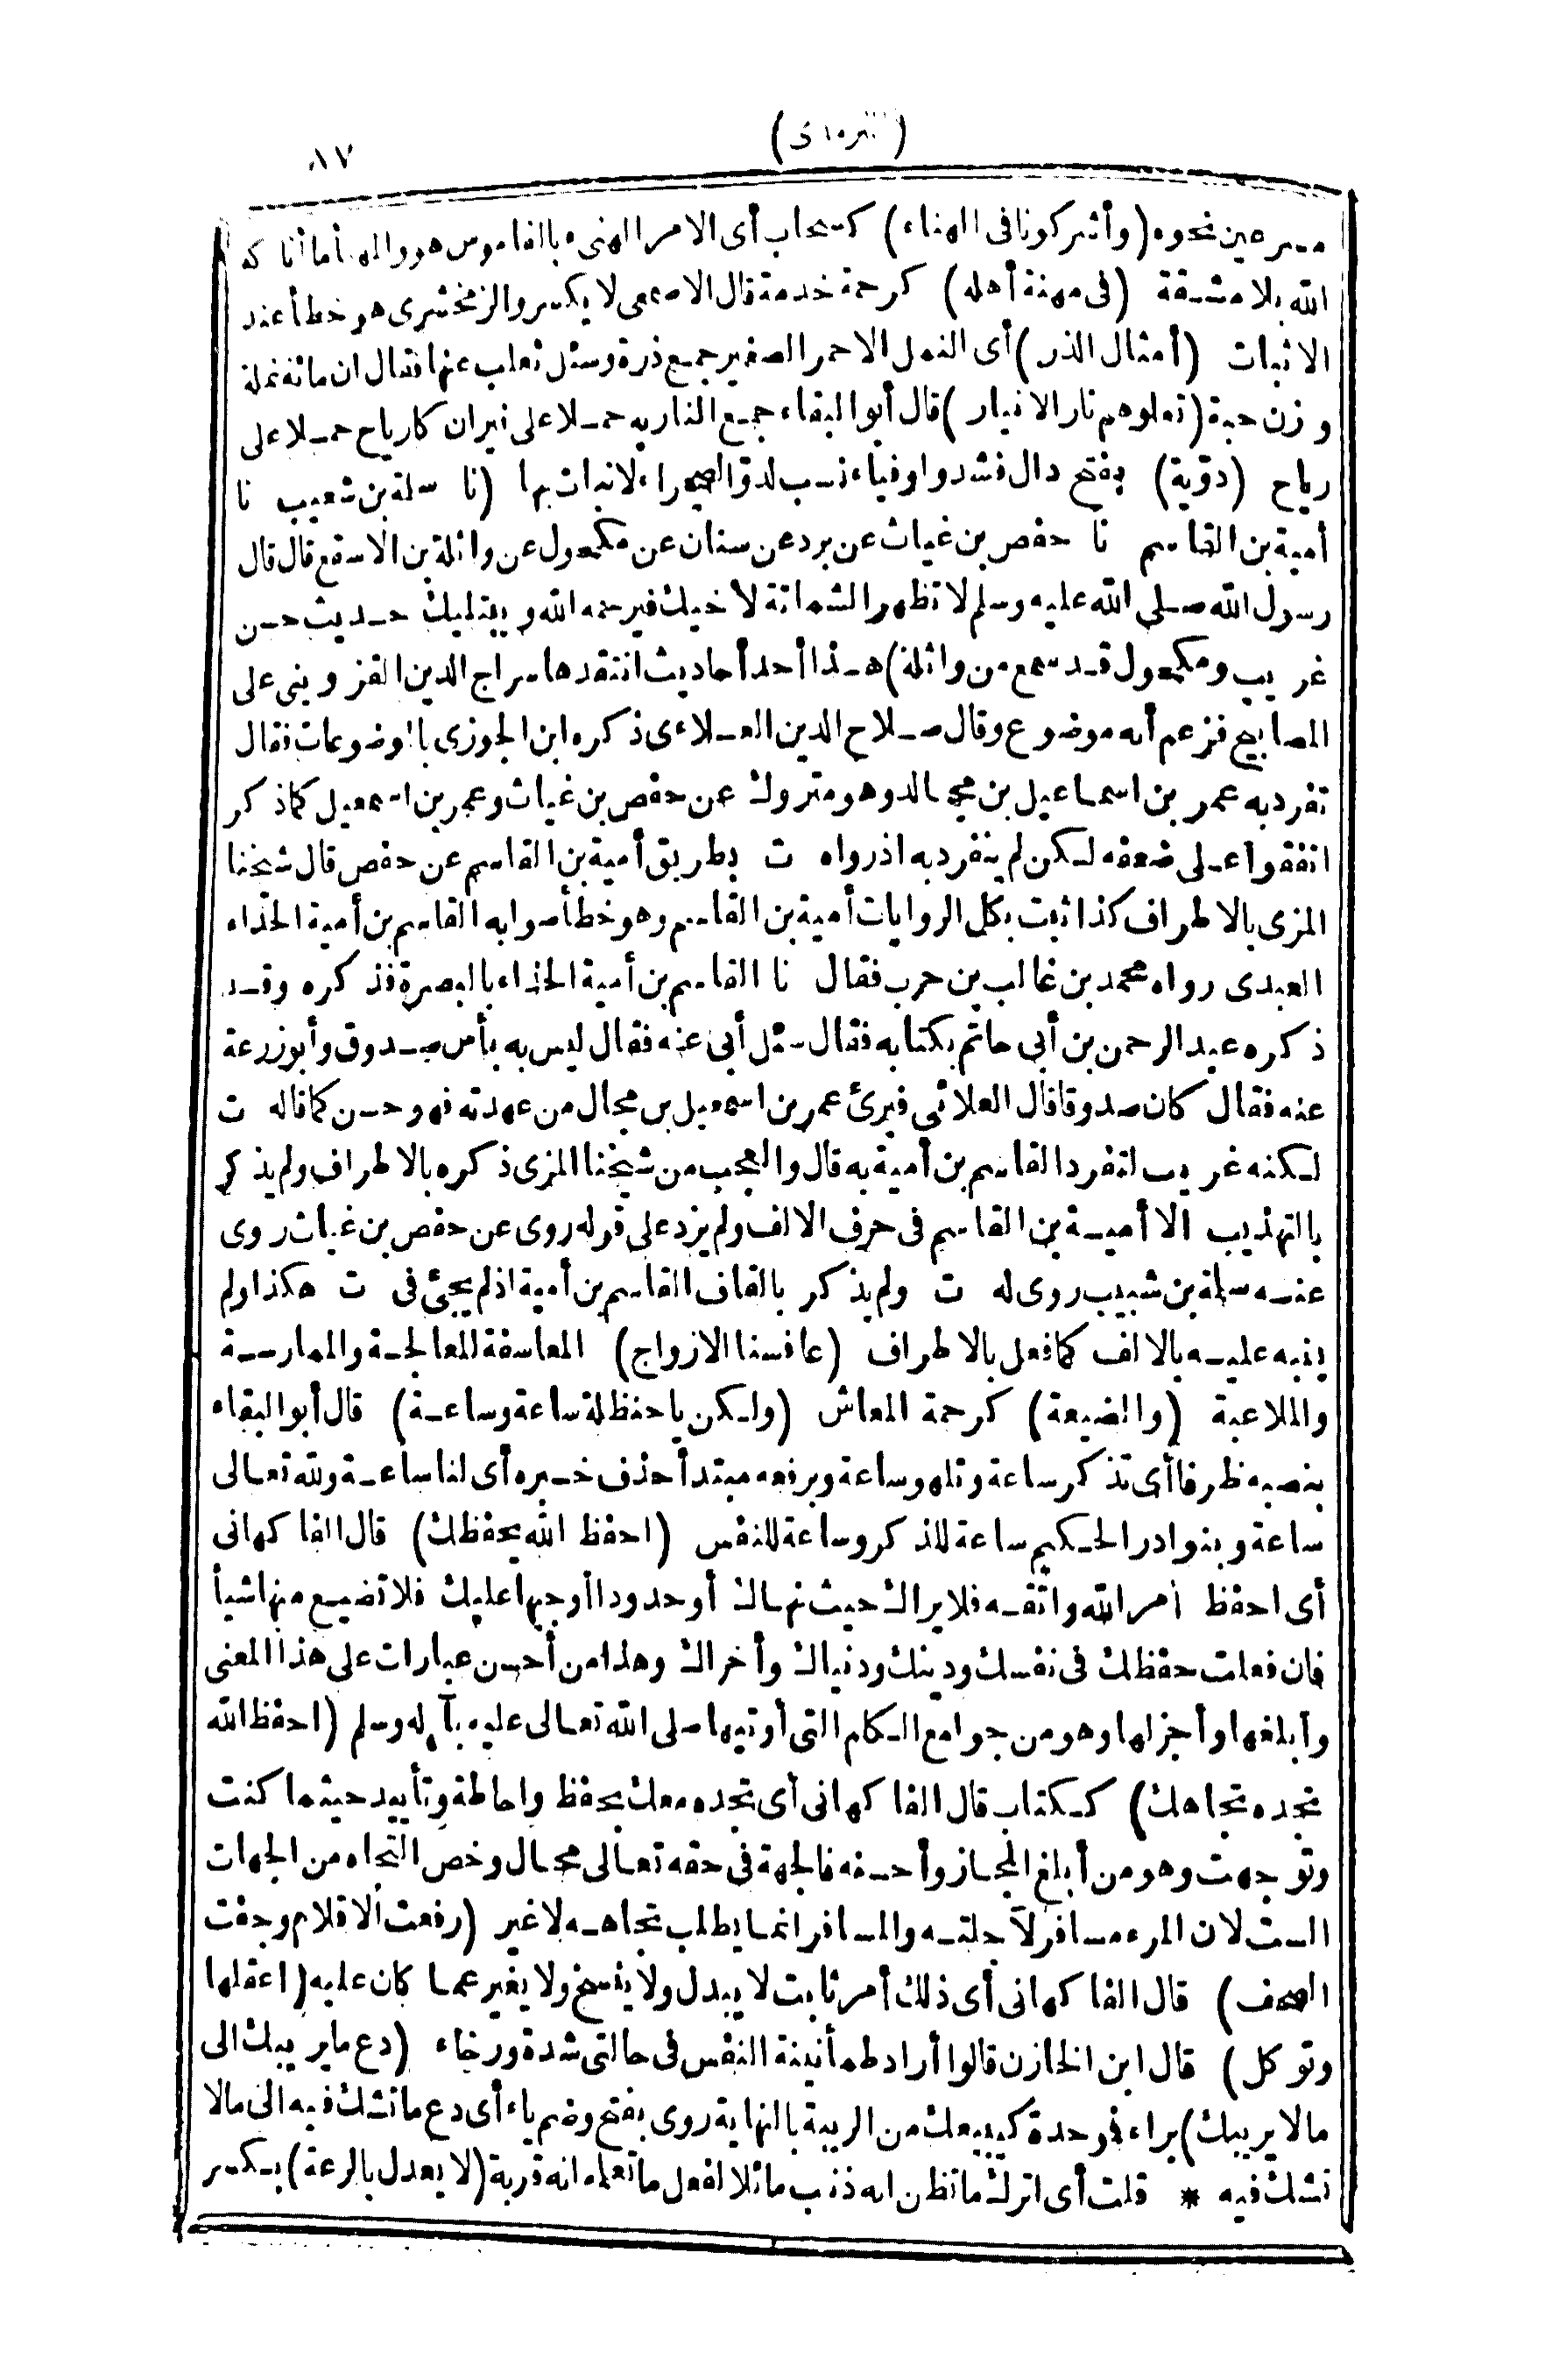 (ترمذى)
٨٧
مسرعين نحوه (وأشركونا فى المهناء) كسحاب أى الامر الهنىء بالقاموس هو والمهنأ ما أتاك
الله بلا مشقة (فى مهنة أهله) كرحمة خدمة قال الاصمعى لا يكسر والزمخشرى هو خطأ عند
الاثبات (أمثال الذر) أى النمل الاحمر الصغير جمع ذرة وسئل ثعلب عنها فقال ان مائة نملة
وزن حبة (تعلوهم نار الانيار) قال أبو البقاء جمع النار يه حملا على نيران كارياح حملا على
رياح (دوّية) بفتح دال فشد واو فياء نسب لدوّ الصحراء لانبات بها (نا سلمة بن شعيب نا
أمية بن القاسم نا حفص بن غياث عن برد عن سنان عن مكحول عن واثلة بن الاسقع قال قال
رسول الله صلى الله عليه وسلم لا تظهر الشماتة لأخيك فيرحمه الله ويبتليك حديث حسن
غريب ومكحول قد سمع من واثلة) هذا أحد أحاديث انتقدها سراج الدين القزوينى على
المصابيح فزعم أنه موضوع وقال صلاح الدين العلاءى ذكره ابن الجوزى بالموضوعات فقال
تفرد به عمر بن اسماعيل بن مجالد وهو متروك عن حفص بن غياث وعمر بن اسمعيل كما ذكر
اتفقوا على ضعفه لكن لم ينفرد به اذ رواه ت بطريق أمية بن القاسم عن حفص قال شيخنا
المزى بالاطراف كذا ثبت بكل الروايات أمية بن القاسم وهو خطأ صوابه القاسم بن أمية الحذاء
العبدى رواه محمد بن غالب بن حرب فقال نا القاسم بن أمية الحذاء بالبصرة فذكره وقد
ذكره عبد الرحمن بن أبى حاتم بكتابه فقال سئل أبى عنه فقال ليس به بأس صدوق وأبو زرعة
عنه فقال كان صدوقا قال العلائى فبرئ عمر بن اسمعيل بن مجال من عهدته فهو حسن كما قاله ت
لكنه غريب لتفرد القاسم بن أمية به قال والعجب من شيخنا المزى ذكره بالاطراف ولم يذكر
بالتهذيب الا أمية بن القاسم فى حرف الالف ولم يزد على قوله روى عن حفص بن غياث روى
عنه سلمة بن شبيب روى له ت ولم يذكر بالقاف القاسم بن أمية اذ لم يجئ فى ت هكذا ولم
ينبه عليه بالالف كما فعل بالاطراف (عافسنا الازواج) المعاسفة المعالجة والممارسة
والملاعبة (والضيعة) كرحمة المعاش (ولكن يا حنظلة ساعة وساعة) قال أبو البقاء
بنصبه ظرفا أى تذكر ساعة وتلهو ساعة وبرفعه مبتدأ حذف خبره أى لنا ساعة ولله تعالى
ساعة وبنوادر الحكيم ساعة للذكر وساعة للنفس (احفظ الله يحفظك) قال الفاكهانى
أى احفظ أمر الله واتقه فلا يراك حيث نهاك أو حدودا أوجبها عليك فلا تضيع منها شيأ
فان فعلت حفظك فى نفسك ودينك ودنياك وأخراك وهذا من أحسن عبارات على هذا المعنى
وأبلغها وأجزلها وهو من جوامع الكلم التى أوتيها صلى الله تعالى عليه بآله وسلم (احفظ الله
تجده تجاهك) ككتاب قال الفاكهانى أى تجده معك بحفظ واحاطة وتأييد حيثما كنت
وتوجهت وهو من أبلغ المجاز وأحسنه فالجهة فى حقه تعالى محال وخص التجاه من الجهات
الست لان المرء مسافر لآجلته والمسافر انما يطلب تجاهه لا غير (رفعت الاقلام وجفت
الصحف) قال الفاكهانى أى ذلك أمر ثابت لا يبدل ولا ينسخ ولا يغير عما كان عليه (اعقلها
وتوكل) قال ابن الخازن قالوا أراد طمأنينة النفس فى حالتى شدة ورخاء (دع ما يريبك الى
ما لا يريبك) براء فوحدة كيبيعك من الريبة بالنهاية روى بفتح وضم ياء أى دع ما تشك فيه الى ما لا
تشك فيه * قلت أى اترك ما تظن انه ذنب مائلا لفعل ما تعلمه انه قربة (لا يعدل بالرعة) بكسر